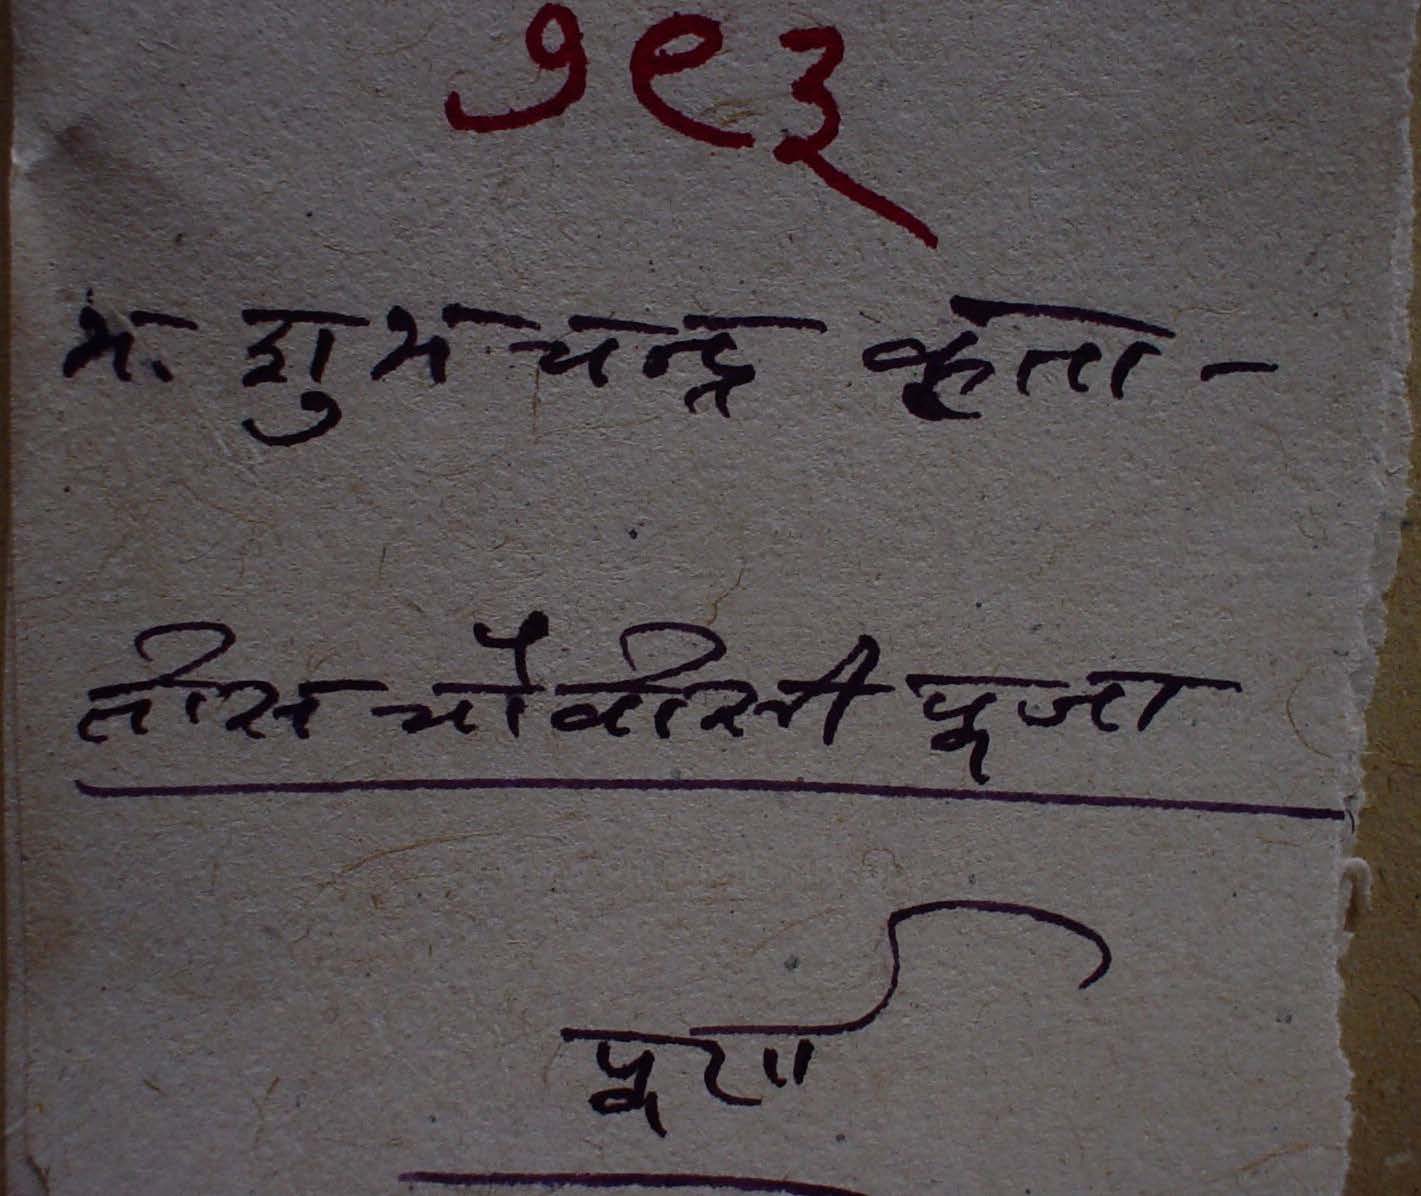 १९३
भ. शुभचन्द्र कृता -
तीस चौवीसी पूजा
पूर्ण